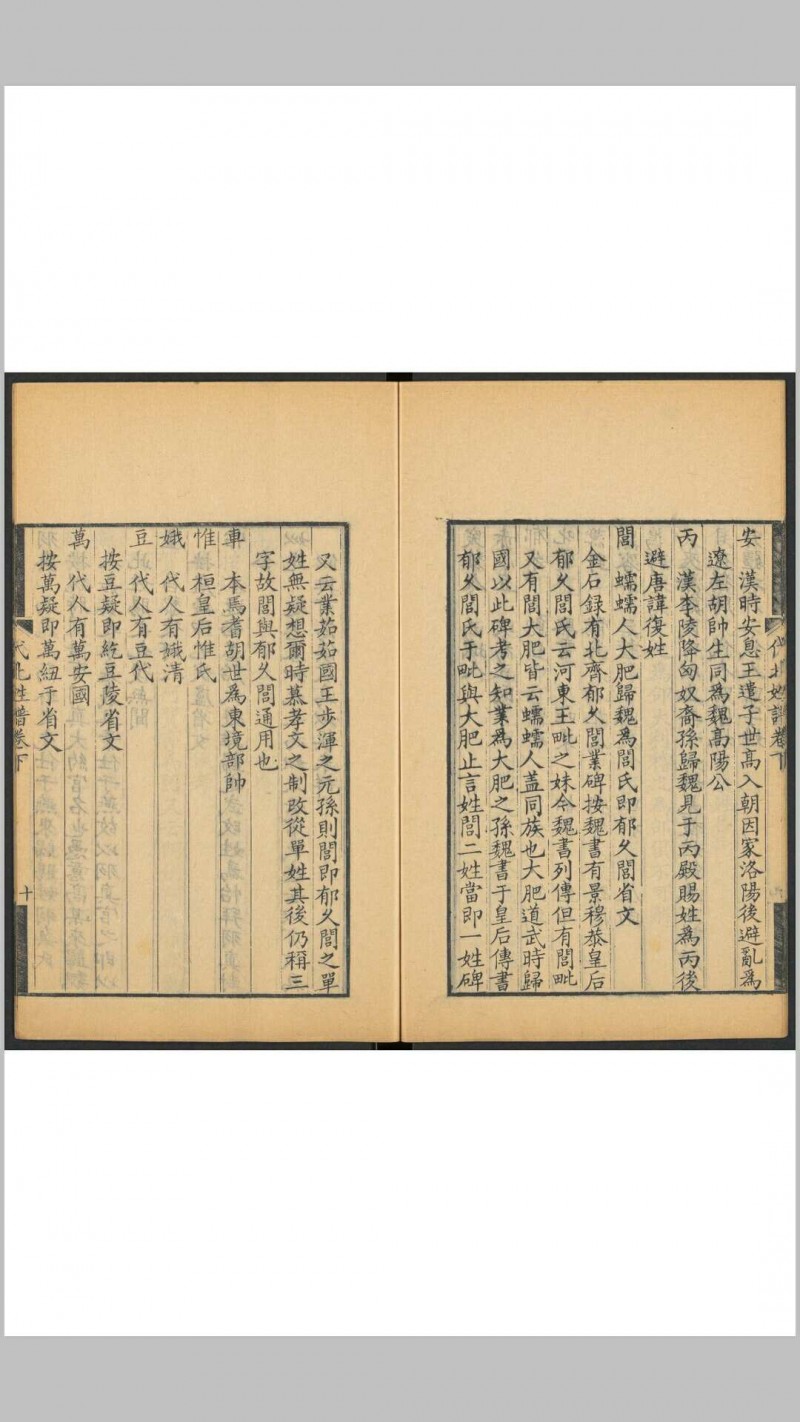 安　漢時安息王遣子世高入朝因家洛陽後避亂為
遼左胡帥生同為魏高陽公
丙　漢李陵降匈奴裔孫歸魏見于丙殿賜姓為丙後
避唐諱復姓
閭　蠕蠕人大肥歸魏為閭氏即郁久閭省文
金石録有北齊郁久閭業碑按魏書有景穆恭皇后
郁久閭氏云河東王毗之妹今魏書列傳但有閭毗
又有閭大肥皆云蠕蠕人蓋同族也大肥道武時歸
國以此碑考之知業為大肥之孫魏書于皇后傳書
郁久閭氏于毗與大肥止言姓閭二姓當即一姓碑
代北姓譜卷下
又云業茹茹國王步渾之元孫則閭即郁久閭之單
姓無疑想爾時慕孝文之制改從單姓其後仍稱三
字故閭與郁久閭通用也
車　本焉耆胡世為東境部帥
惟　桓皇后惟氏
娥　代人有娥清
豆　代人有豆代
按豆疑即紇豆陵省文
萬　代人有萬安國
按萬疑即萬紐于省文
代北姓譜卷下
十